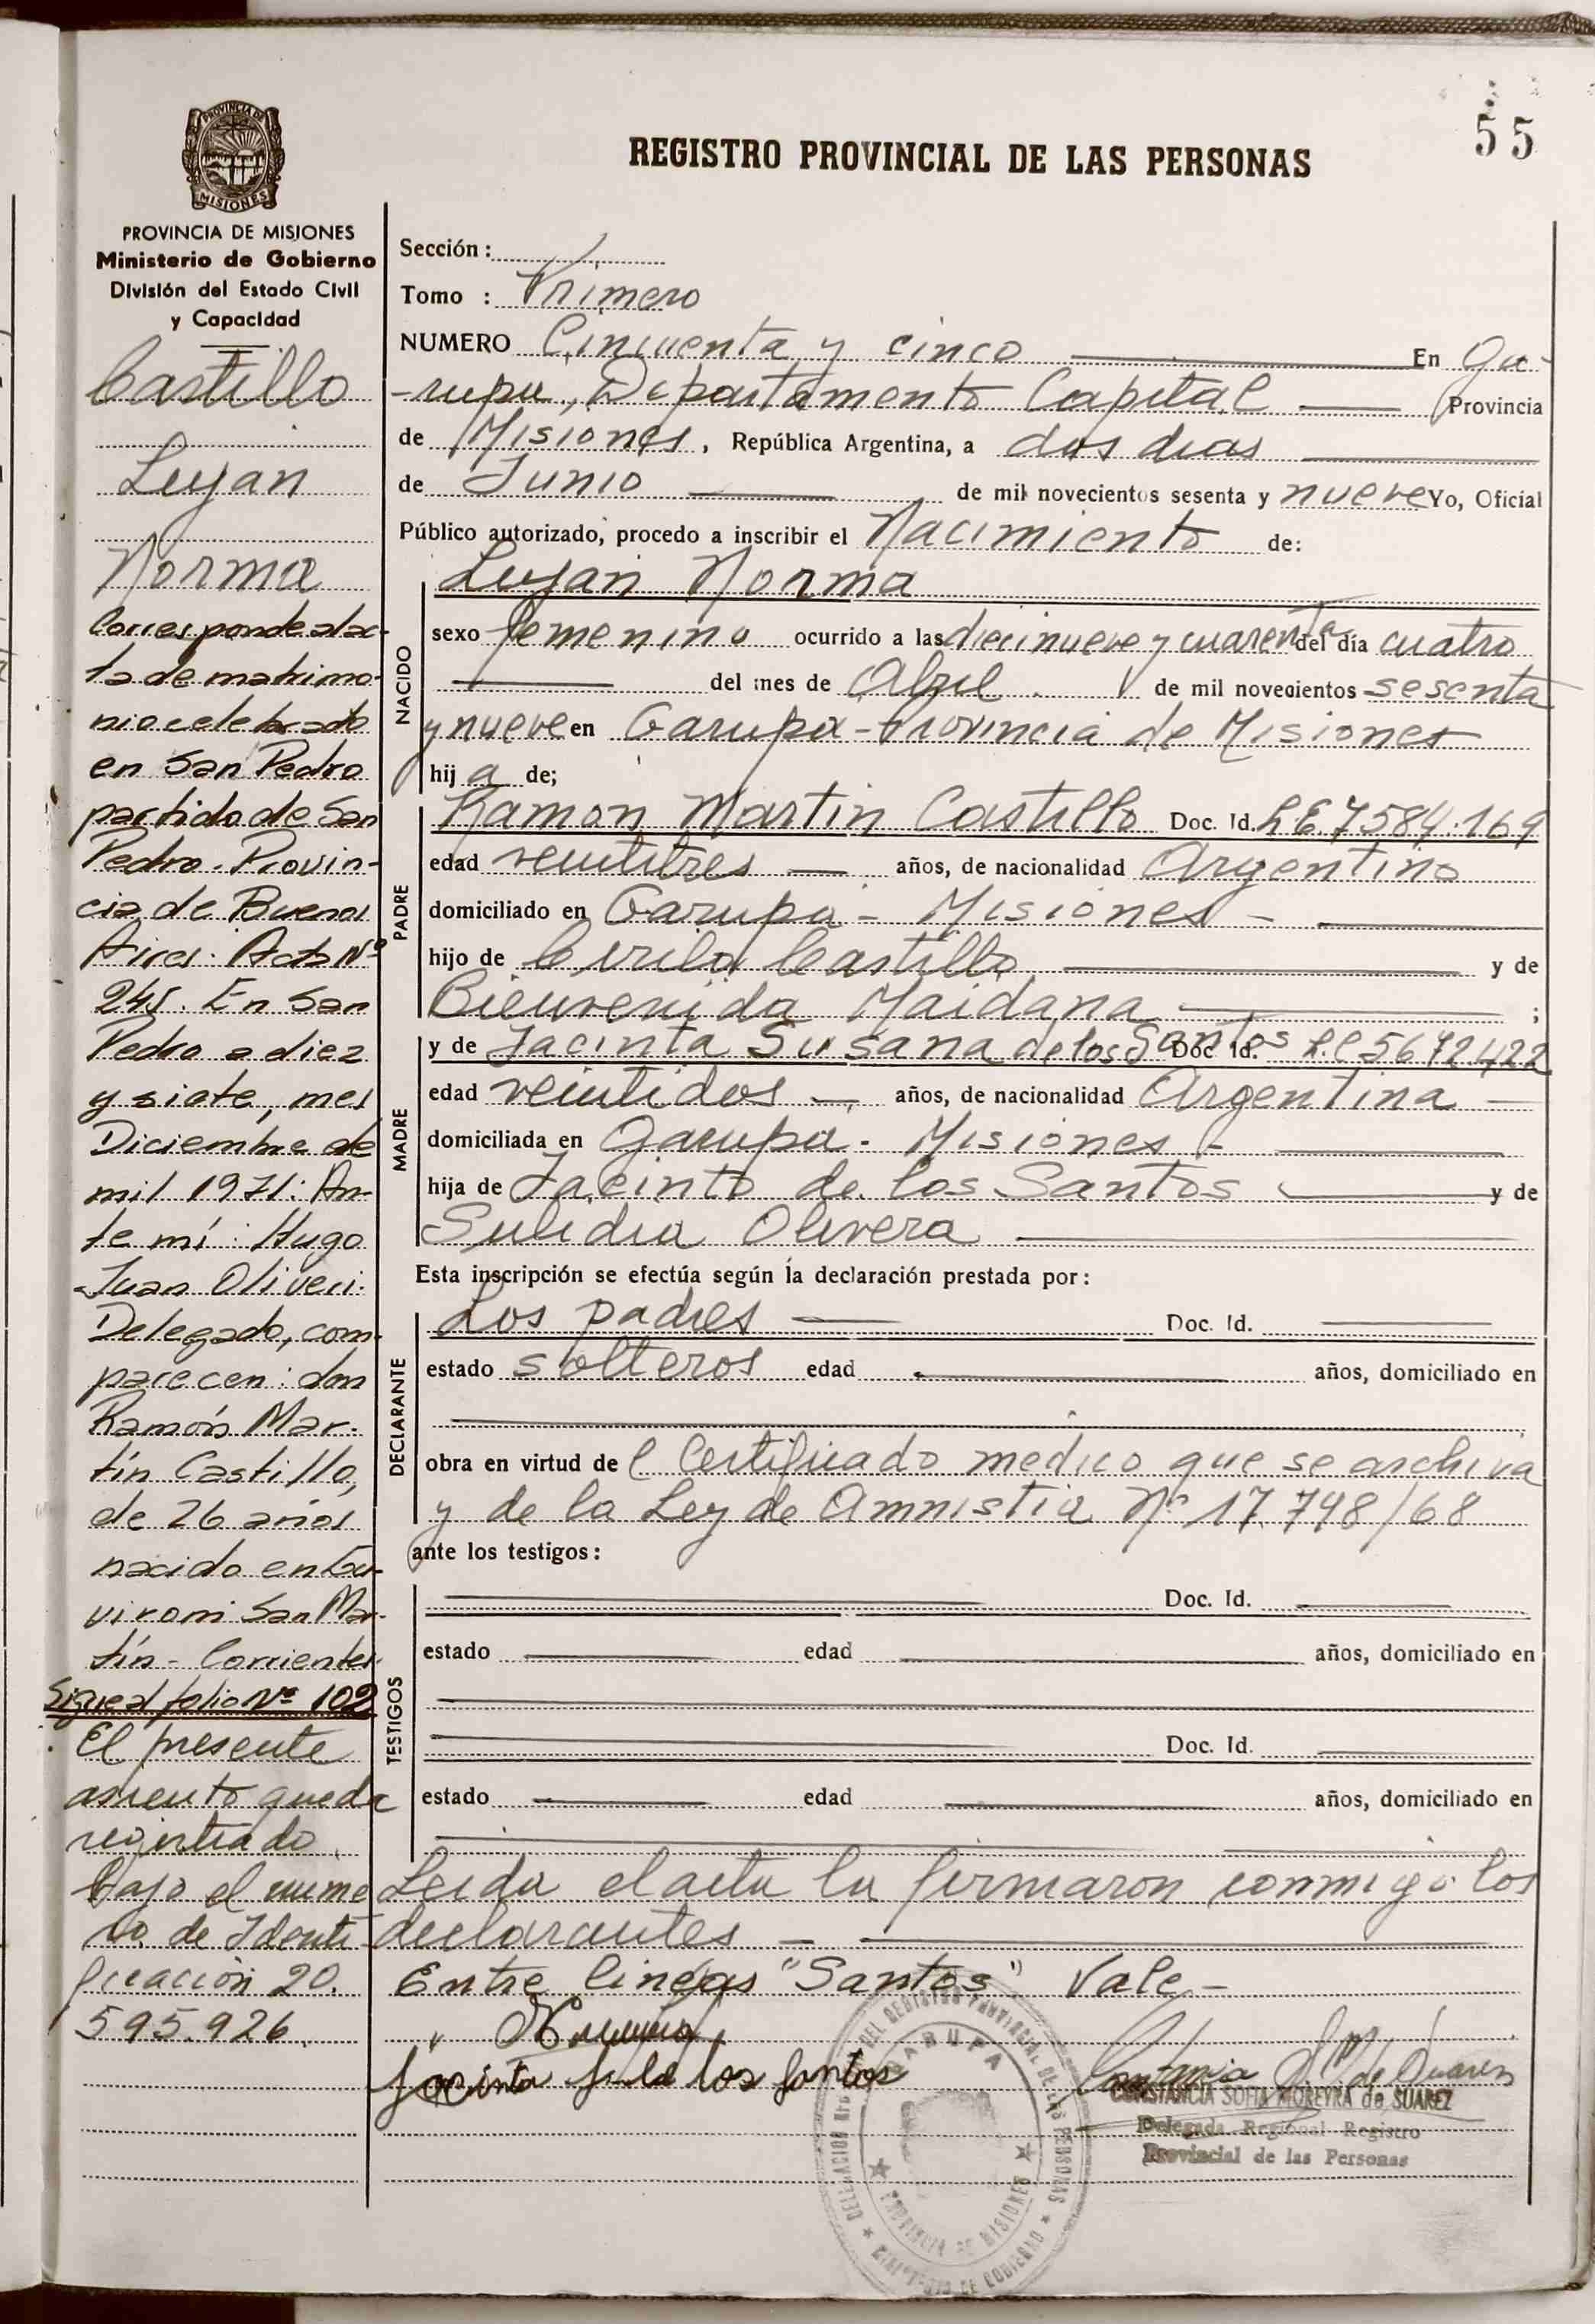 55
PROVINCIA DE
MISIONES
REGISTRO PROVINCIAL DE LAS PERSONAS
PROVINCIA DE MISIONES
Ministerio de Gobierno
División del Estado Civil
y Capacidad
Castillo
Lujan
Norma
Corresponde al ac-
ta de matrimo-
nio celebrado
en San Pedro
partido de San
Pedro. Provin-
cia de Buenos
Aires. Acta Nº
245. En San
Pedro a diez
y siete, mes
Diciembre de
mil 1971: An-
te mí: Hugo
Juan Oliveri:
Delegado, com-
parecen: don
Ramón Mar-
tín Castillo,
de 26 años
nacido en Gu-
viromi San Mar-
tín - Corrientes.
Sigue al folio Nº 102
El presente
asiento queda
registrado
bajo el nume
ro de Identi-
ficación 20.
595.926.
Sección:
Tomo : Primero
NUMERO Cincuenta y cinco En Ga-
-rupa, Departamento Capital Provincia
de Misiones, República Argentina, a dos dias
de Junio de mil novecientos sesenta y nueve Yo, Oficial
Público autorizado, procedo a inscribir el Nacimiento de:
NACIDO
Lujan Norma
sexo femenino ocurrido a las diecinueve y cuarenta del día cuatro
del mes de Abril de mil novecientos sesenta
y nueve en Garupa - Provincia de Misiones
hij a de;
PADRE
Ramon Martin Castillo Doc. Id. L.E. 7584.169
edad veintitres años, de nacionalidad Argentino
domiciliado en Garupa - Misiones -
hijo de Cirilo Castillo y de
Bienvenida Maidana ;
MADRE
y de Jacinta Susana de los Santos Doc. Id. L.C 5672422
edad veintidos años, de nacionalidad Argentina
domiciliada en Garupa - Misiones -
hija de Jacinto de los Santos y de
Olivera
Esta inscripción se efectúa según la declaración prestada por:
DECLARANTE
Los padres Doc. Id.
estado solteros edad años, domiciliado en
obra en virtud de l Certificado medico que se archiva
y de la Ley de Amnistia Nº 17.748/68
ante los testigos:
TESTIGOS
Doc. Id.
estado edad años, domiciliado en
Doc. Id.
estado edad años, domiciliado en
Leida el acta la firmaron conmigo los
declarantes -
Entre lineas "Santos" Vale -
Jacinta S. de los Santos
CONSTANCIA SOFIA MOREYRA de SUAREZ
Delegada Regional Registro
Provincial de las Personas
DEL REGISTRO PROVINCIAL DE LAS PERSONAS
GARUPA
PROVINCIA DE MISIONES